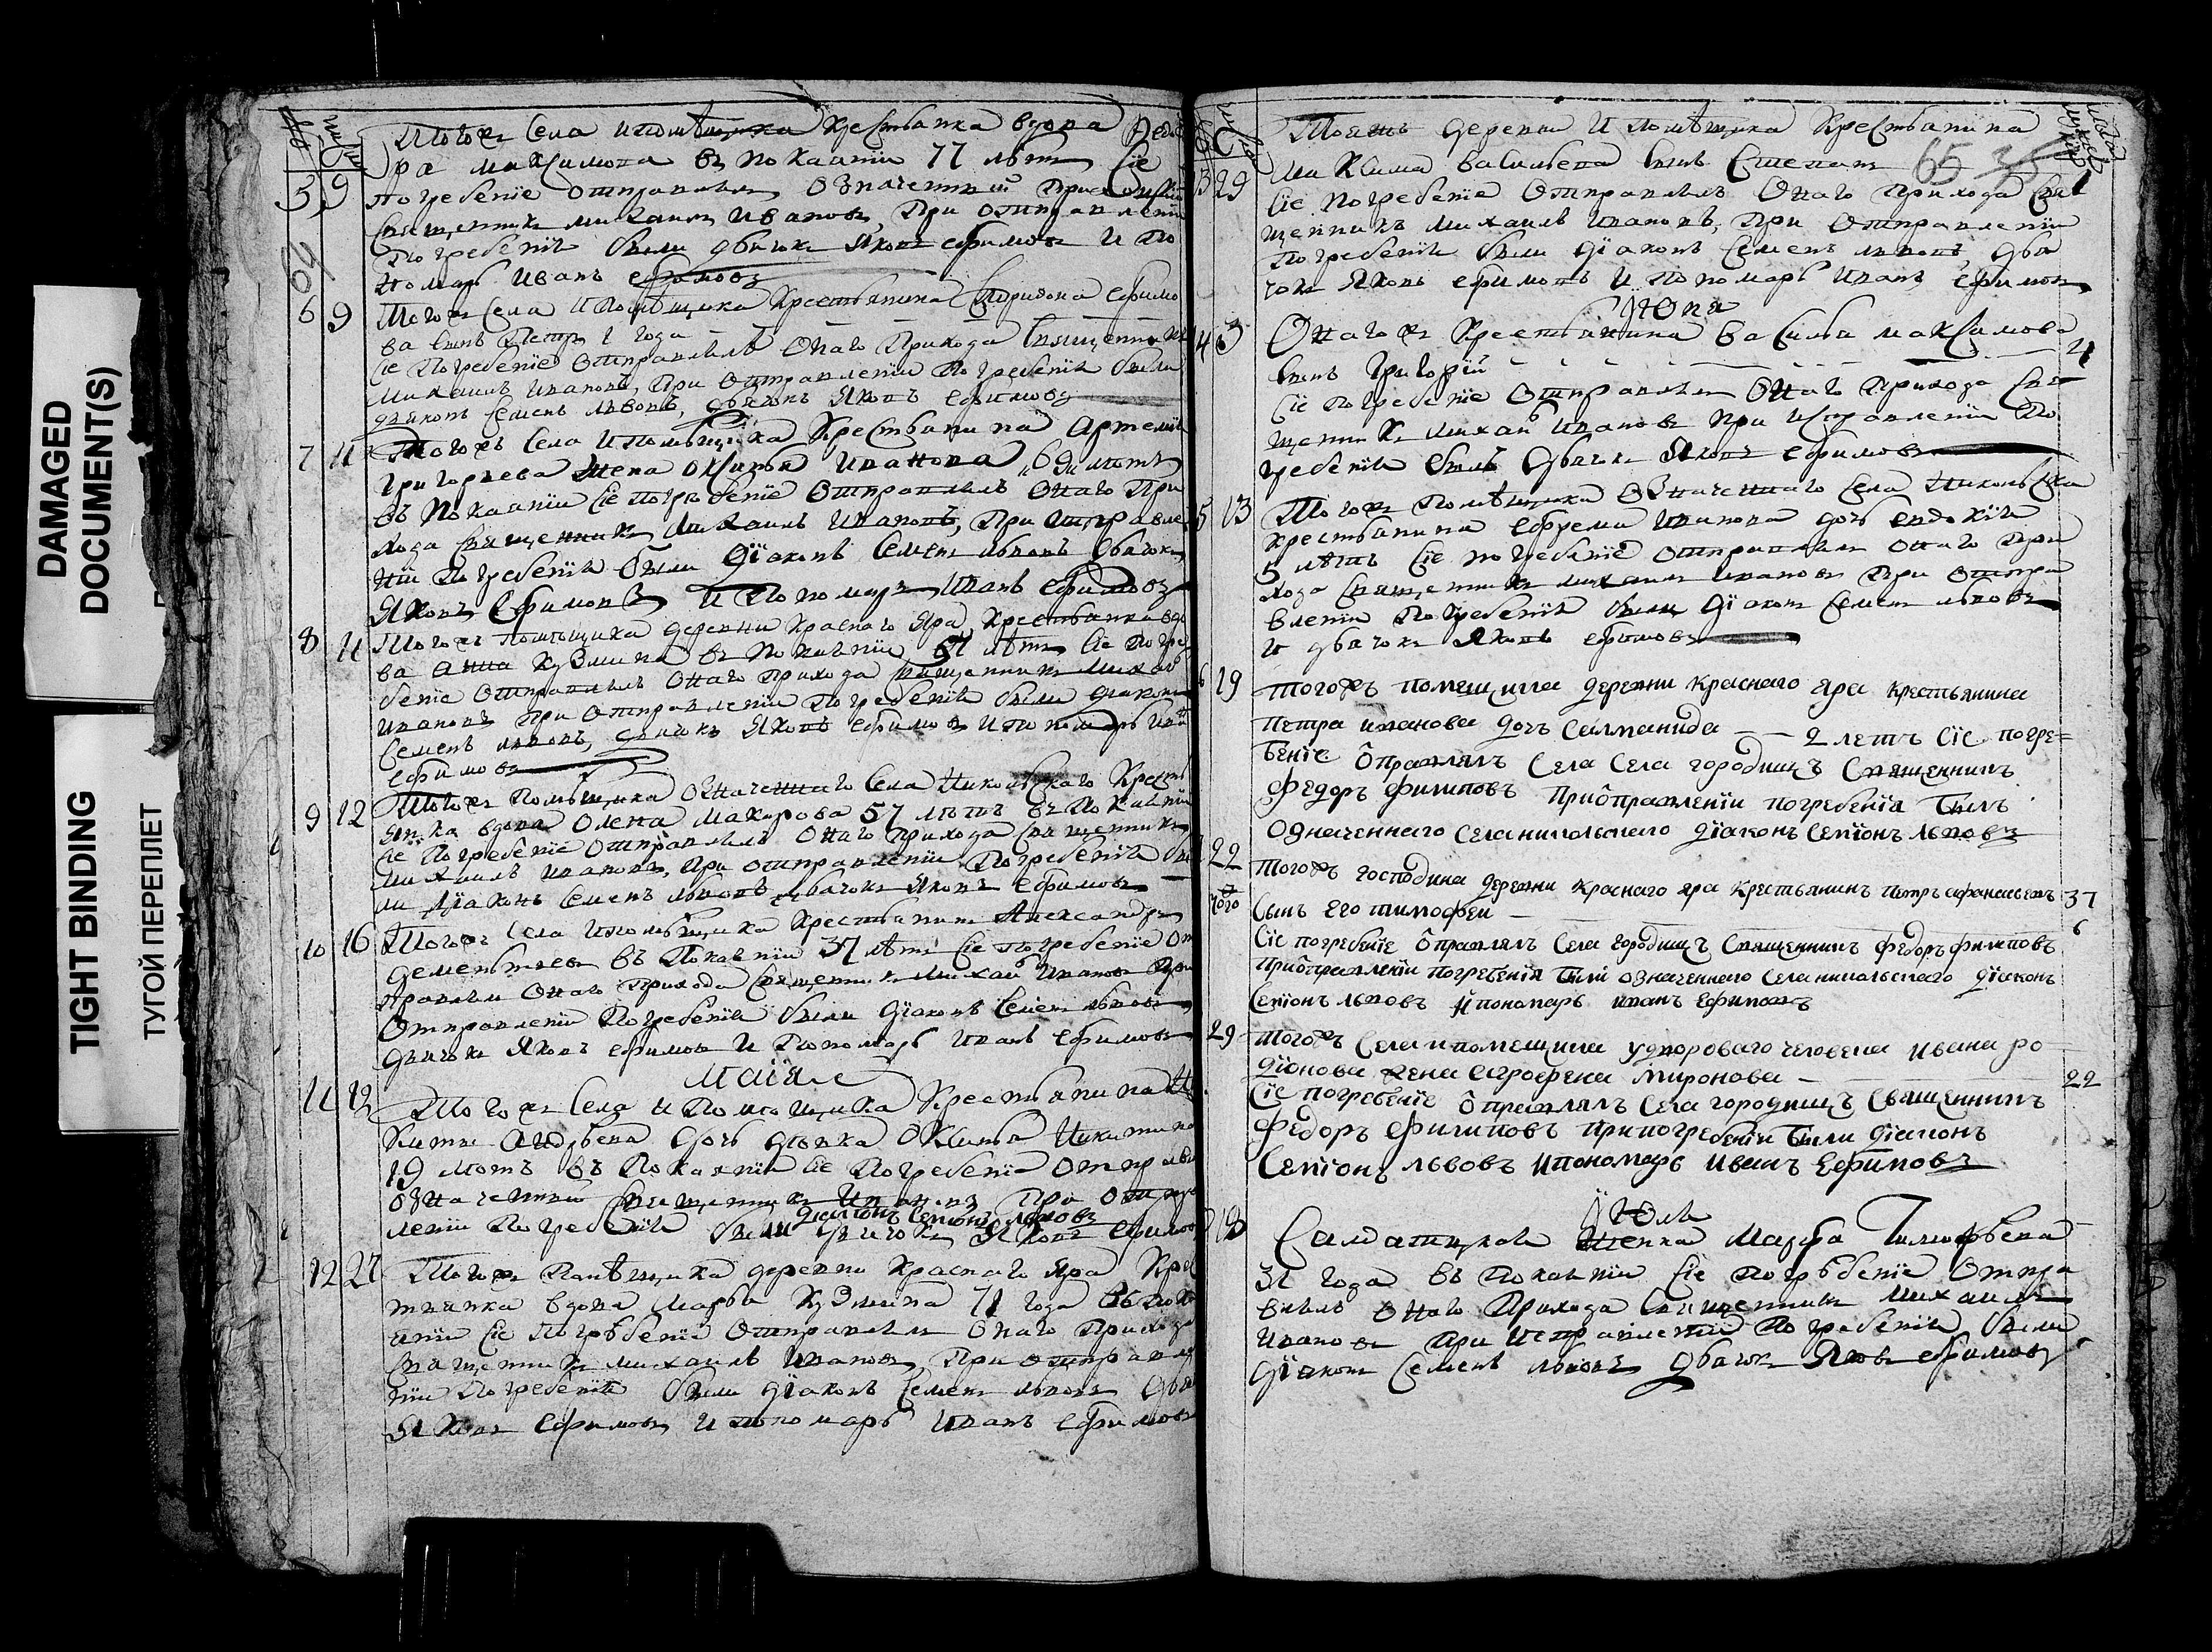 DAMAGED
DOCUMENT(S)
TIGHT BINDING
ТУГОЙ ПЕРЕПЛЕТ
64
Тогожъ села и помѣщика крестьянка вдова
ра максимова въ покаянїи 77 лѣтъ сіе
5 9 погребенїе отправлялъ означенный
священникъ михаилъ ивановъ, при отправленїи
погребенїя были дьячокъ яковъ ефимовъ и по
номарь иванъ ефимовъ
6 9 Тогожъ села и помѣщика крестьянина Спиридона ефимо
ва сынъ Петръ 1 года
сїе погребенїе отправлялъ онаго прихода священникъ
михаилъ ивановъ, при отправленїи погребенїя были
дьяконъ семенъ львовъ, дьячокъ яковъ ефимовъ
7 11 Тогожъ села и помѣщика крестьянина Артемїя
григорьева жена оксинья иванова лѣтъ
въ покаянїи сїе погребенїе отправлялъ онаго при
хода священникъ михаилъ ивановъ, при исправле
нїи погребенїя были дїаконъ семенъ львовъ дьячокъ
яковъ ефимовъ и пономарь иванъ ефимовъ
8 11 Тогожъ помѣщика деревни краснаго яра крестьянка вдо
ва анна кузмина въ покаянїи лѣтъ сїе погре
бенїе отправлялъ онаго прихода священникъ михаи
ивановъ при отправленїи погребенїя были дїаконъ
семенъ львовъ, дьячокъ яковъ ефимовъ и пономарь
ефимовъ
9 12 Тогожъ помѣщика означеннаго села никольскаго кресть
янка вдова олена макарова 57 лѣтъ въ покаянїи
сїе погребенїе отправлялъ онаго прихода священникъ
михаилъ ивановъ, при отправленїи погребенїя бы
ли дїаконъ семенъ львовъ дьячокъ яковъ ефимовъ
10 16 Тогожъ села и помѣщика крестьянинъ Александръ
дементьевъ въ покаянїи 37 лѣтъ сїе погребенїе от
правлялъ онаго прихода священникъ михаи ивановъ при
отправленїи погребенїя были дїаконъ семенъ львовъ
дьячокъ яковъ ефимовъ и пономарь иванъ ефимовъ
маїя
11 12 Тогожъ села и помѣщика крестьянина ни
киты андрѣева дочь дѣвка оксинья никитина
19 лѣтъ въ покаянїи сїе погребенїе отправлялъ
означенный священникъ ивановъ при отправ
дїаконъ семїонъ львовъ
ленїи погребенїя были дьячокъ яковъ ефимовъ
12 27 Тогожъ помѣщика деревни краснаго яра крес
тьянка вдова марфа кузмина 71 года въ пока
янїи сїе погрѣбенїе отправлялъ онаго прихода
священникъ михаилъ ивановъ, при отправле
нїи погребенїя были дїаконъ семенъ львовъ дья
яковъ ефимовъ и пономарь иванъ ефимовъ
65
Тояжъ деревни и помѣщика крестьянина
максима васильева сынъ степанъ 1
13 29 сїе погребенїе отправлялъ онаго прихода свя
щенникъ михаилъ ивановъ, при отправленїи
погребенїя были дїаконъ семенъ львовъ, дья
чокъ яковъ ефимовъ и пономарь иванъ ефимовъ
Їюня
Онагожъ крестьянина василья максимова
сынъ григорїй 4
сїе погребенїе отправлялъ онаго прихода свя
щенникъ михаи ивановъ при исправленїи по
гребенїя былъ дьячокъ яковъ ефимовъ
5 13 Тогожъ помѣщика означеннаго села никольска
крестьянина ефрема иванова дочь евдокїя
5 лѣтъ сїе погребенїе отправлялъ онаго при
хода священникъ михаилъ ивановъ при отпра
вленїи погребенїя были дїаконъ семенъ львовъ
и дьячокъ яковъ ефимовъ
6 19 тогожъ помещика деревни краснаго яра крестьянина
петра иванова дочь Салманида 2 летъ сїе погре=
бенїе ôправлялъ села села городищъ священникъ
федоръ филиповъ приôправленїи погребенїя былъ
означеннаго села никольскаго дїаконъ семїонъ львовъ
22 тогожъ господина деревни краснаго яра крестьянинъ петръ афанасьевъ 37
того сынъ его тимофеи 6
сїе погребенїе ôправлялъ села городищъ священникъ федоръ филиповъ
приôправленїи погребенїя были означеннаго села никольскаго дїаконъ
семїонъ львовъ и пономарь иванъ ефимовъ
29 тогожъ села и помещика удворового человека ивана ро
дїонова жена аграфена миронова 22
сїе погребенїе ôправлялъ села городищъ священникъ
федоръ филиповъ при погребенїи были дїаконъ
семїонъ львовъ и пономарь иванъ ефимовъ
Їюля
18 Салдатцкая женка марфа тимофѣева
31 года въ покаянїи сїе погрѣбенїе отпра
влялъ онаго прихода священникъ михаилъ
ивановъ при исправленїи погребенїя были
дїаконъ семенъ львовъ дьячокъ яковъ ефимовъ